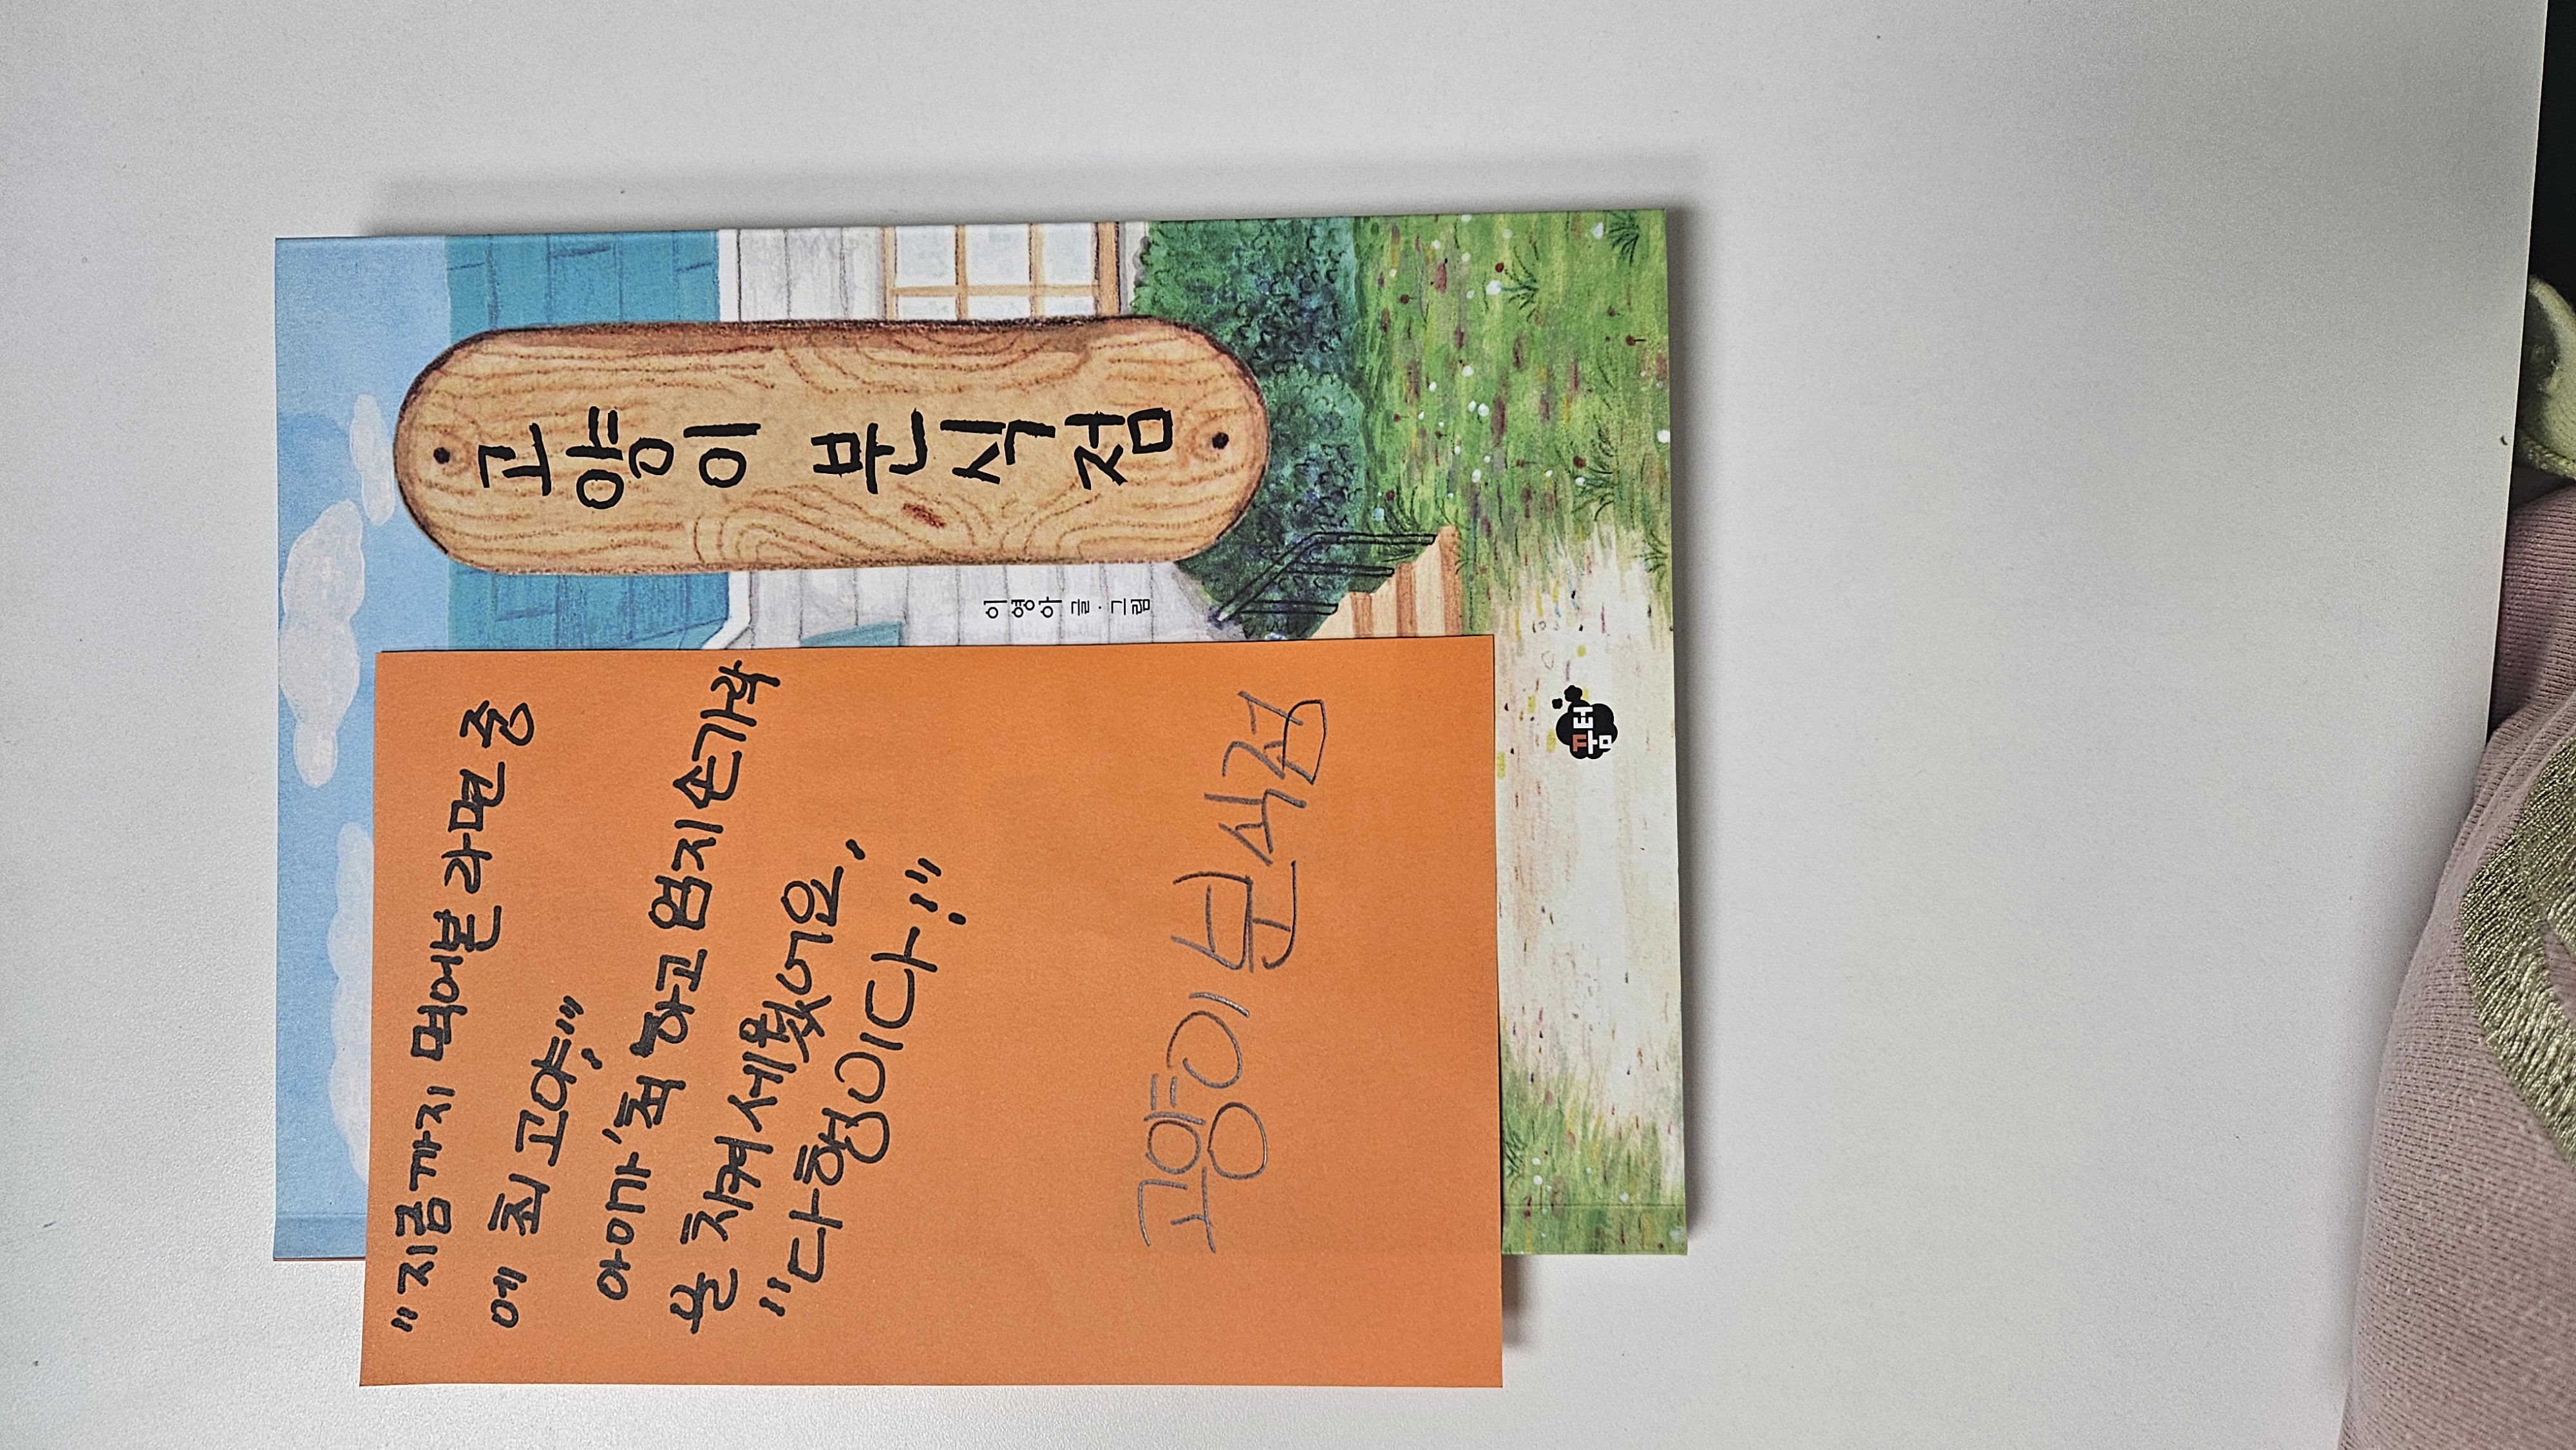 고양이 분식점
이영아 글·그림
"지금까지 먹어본 라면 중
에 최고야!"
아이가 '척'하고 엄지손가락
을 치켜세웠어요.
"다행이다!"
고양이 분식점
꿈터